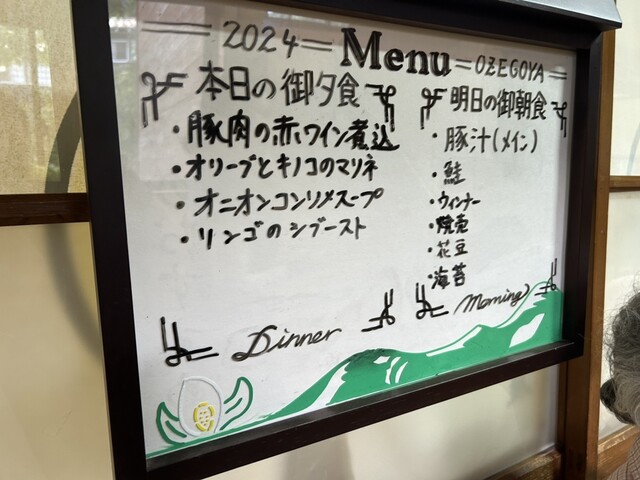 2024 Menu OZEGOYA
本日の御夕食
・豚肉の赤ワイン煮込
・オリーブとキノコのマリネ
・オニオンコンソメスープ
・リンゴのシブースト
Dinner
明日の御朝食
・豚汁(メイン)
・鮭
・ウィンナー
・焼売
・花豆
・海苔
Morning